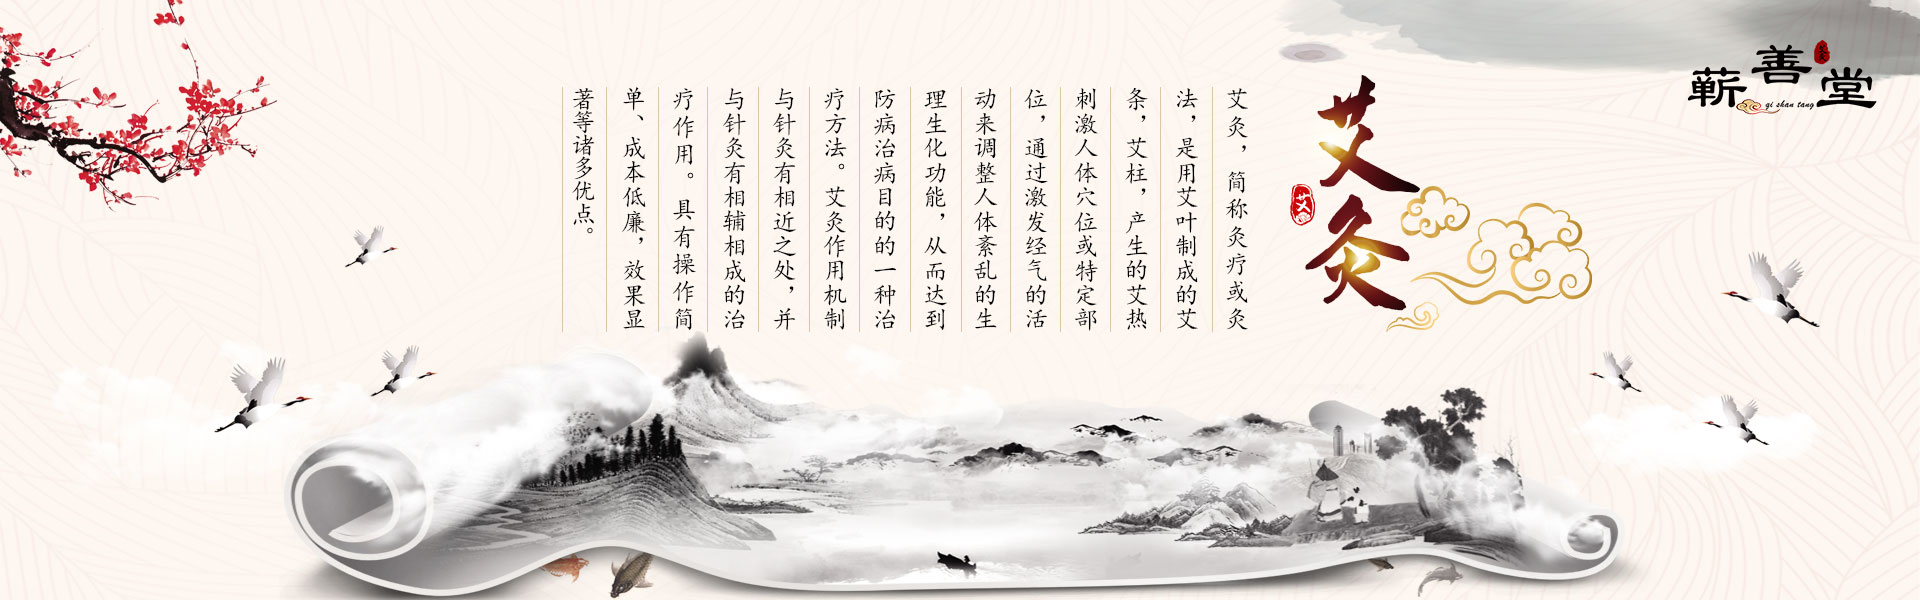 蕲善堂
qi shan tang
艾灸
艾灸
艾灸，简称灸疗或灸
法，是用艾叶制成的艾
条，艾柱，产生的艾热
刺激人体穴位或特定部
位，通过激发经气的活
动来调整人体紊乱的生
理生化功能，从而达到
防病治病目的的一种治
疗方法。艾灸作用机制
与针灸有相近之处，并
与针灸有相辅相成的治
疗作用。具有操作简
单、成本低廉，效果显
著等诸多优点。